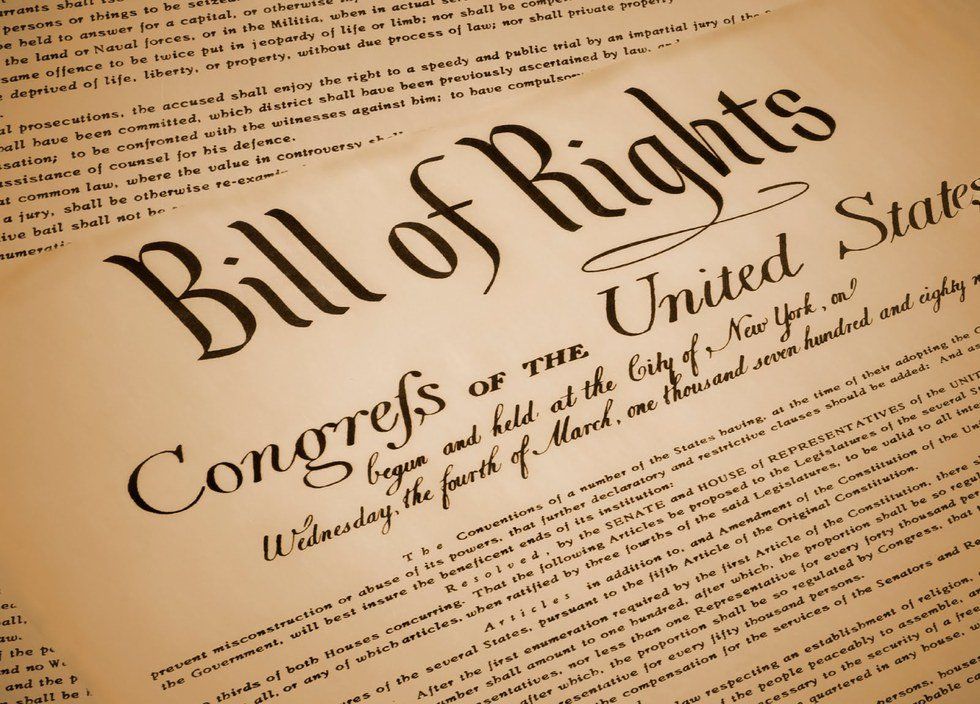 persons or things to be
be held to answer for a capital, or otherwise
the land or Naval forces, or in the Militia, when in actual
same offence to be twice put in jeopardy of life or limb; nor shall be
deprived of life, liberty, or property, without due process of law; nor shall private property
prosecutions, the accused shall enjoy the right to a speedy and public trial by an impartial jury of the
shall have been committed, which district shall have been previously ascertained by law,
to be confronted with the witnesses against him; to have
assistance of counsel for his defence.
common law, where the value in controversy
a jury, shall be otherwise
bail shall not be
Bill of Rights
Congreſs OF THE United States
begun and held at the City of New York, on
Wednesday, the fourth of March, one thousand seven hundred and eighty
The Conventions of a number of the States having, at the time of their adopting the
prevent misconstruction or abuse of its powers, that further declaratory and restrictive clauses should be added: And as
the Government, will best insure the beneficent ends of its institution:
Resolved, by the SENATE and HOUSE of REPRESENTATIVES of the
thirds of both Houses concurring. That the following Articles be proposed to the Legislatures of the several
all, or any of which articles, when ratified by three fourths of the said Legislatures, to be valid to all
Articles in addition to, and Amendment of the Constitution of the
of the several States, pursuant to the fifth Article of the Original Constitution.
After the first enumeration required by the first Article of the Constitution, there
shall amount to one hundred, after which, the proportion shall be so
nor less than one Representative for every forty thousand
after which, the proportion shall be so regulated by Congress, that
for every fifty thousand persons.
compensation for the services of the Senators and
law respecting an establishment of religion,
of the people peaceably to assemble,
necessary to the security of a
quartered in any house,